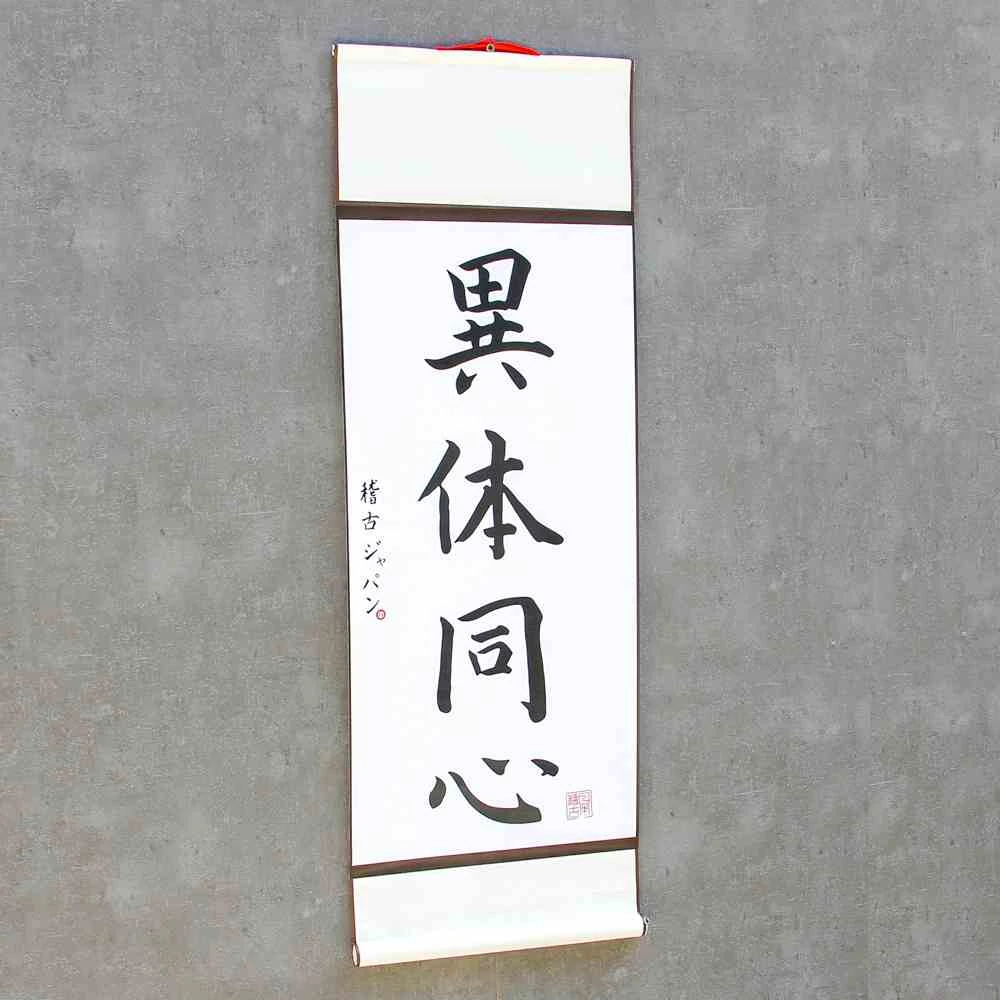 異体同心
稽古ジャパン